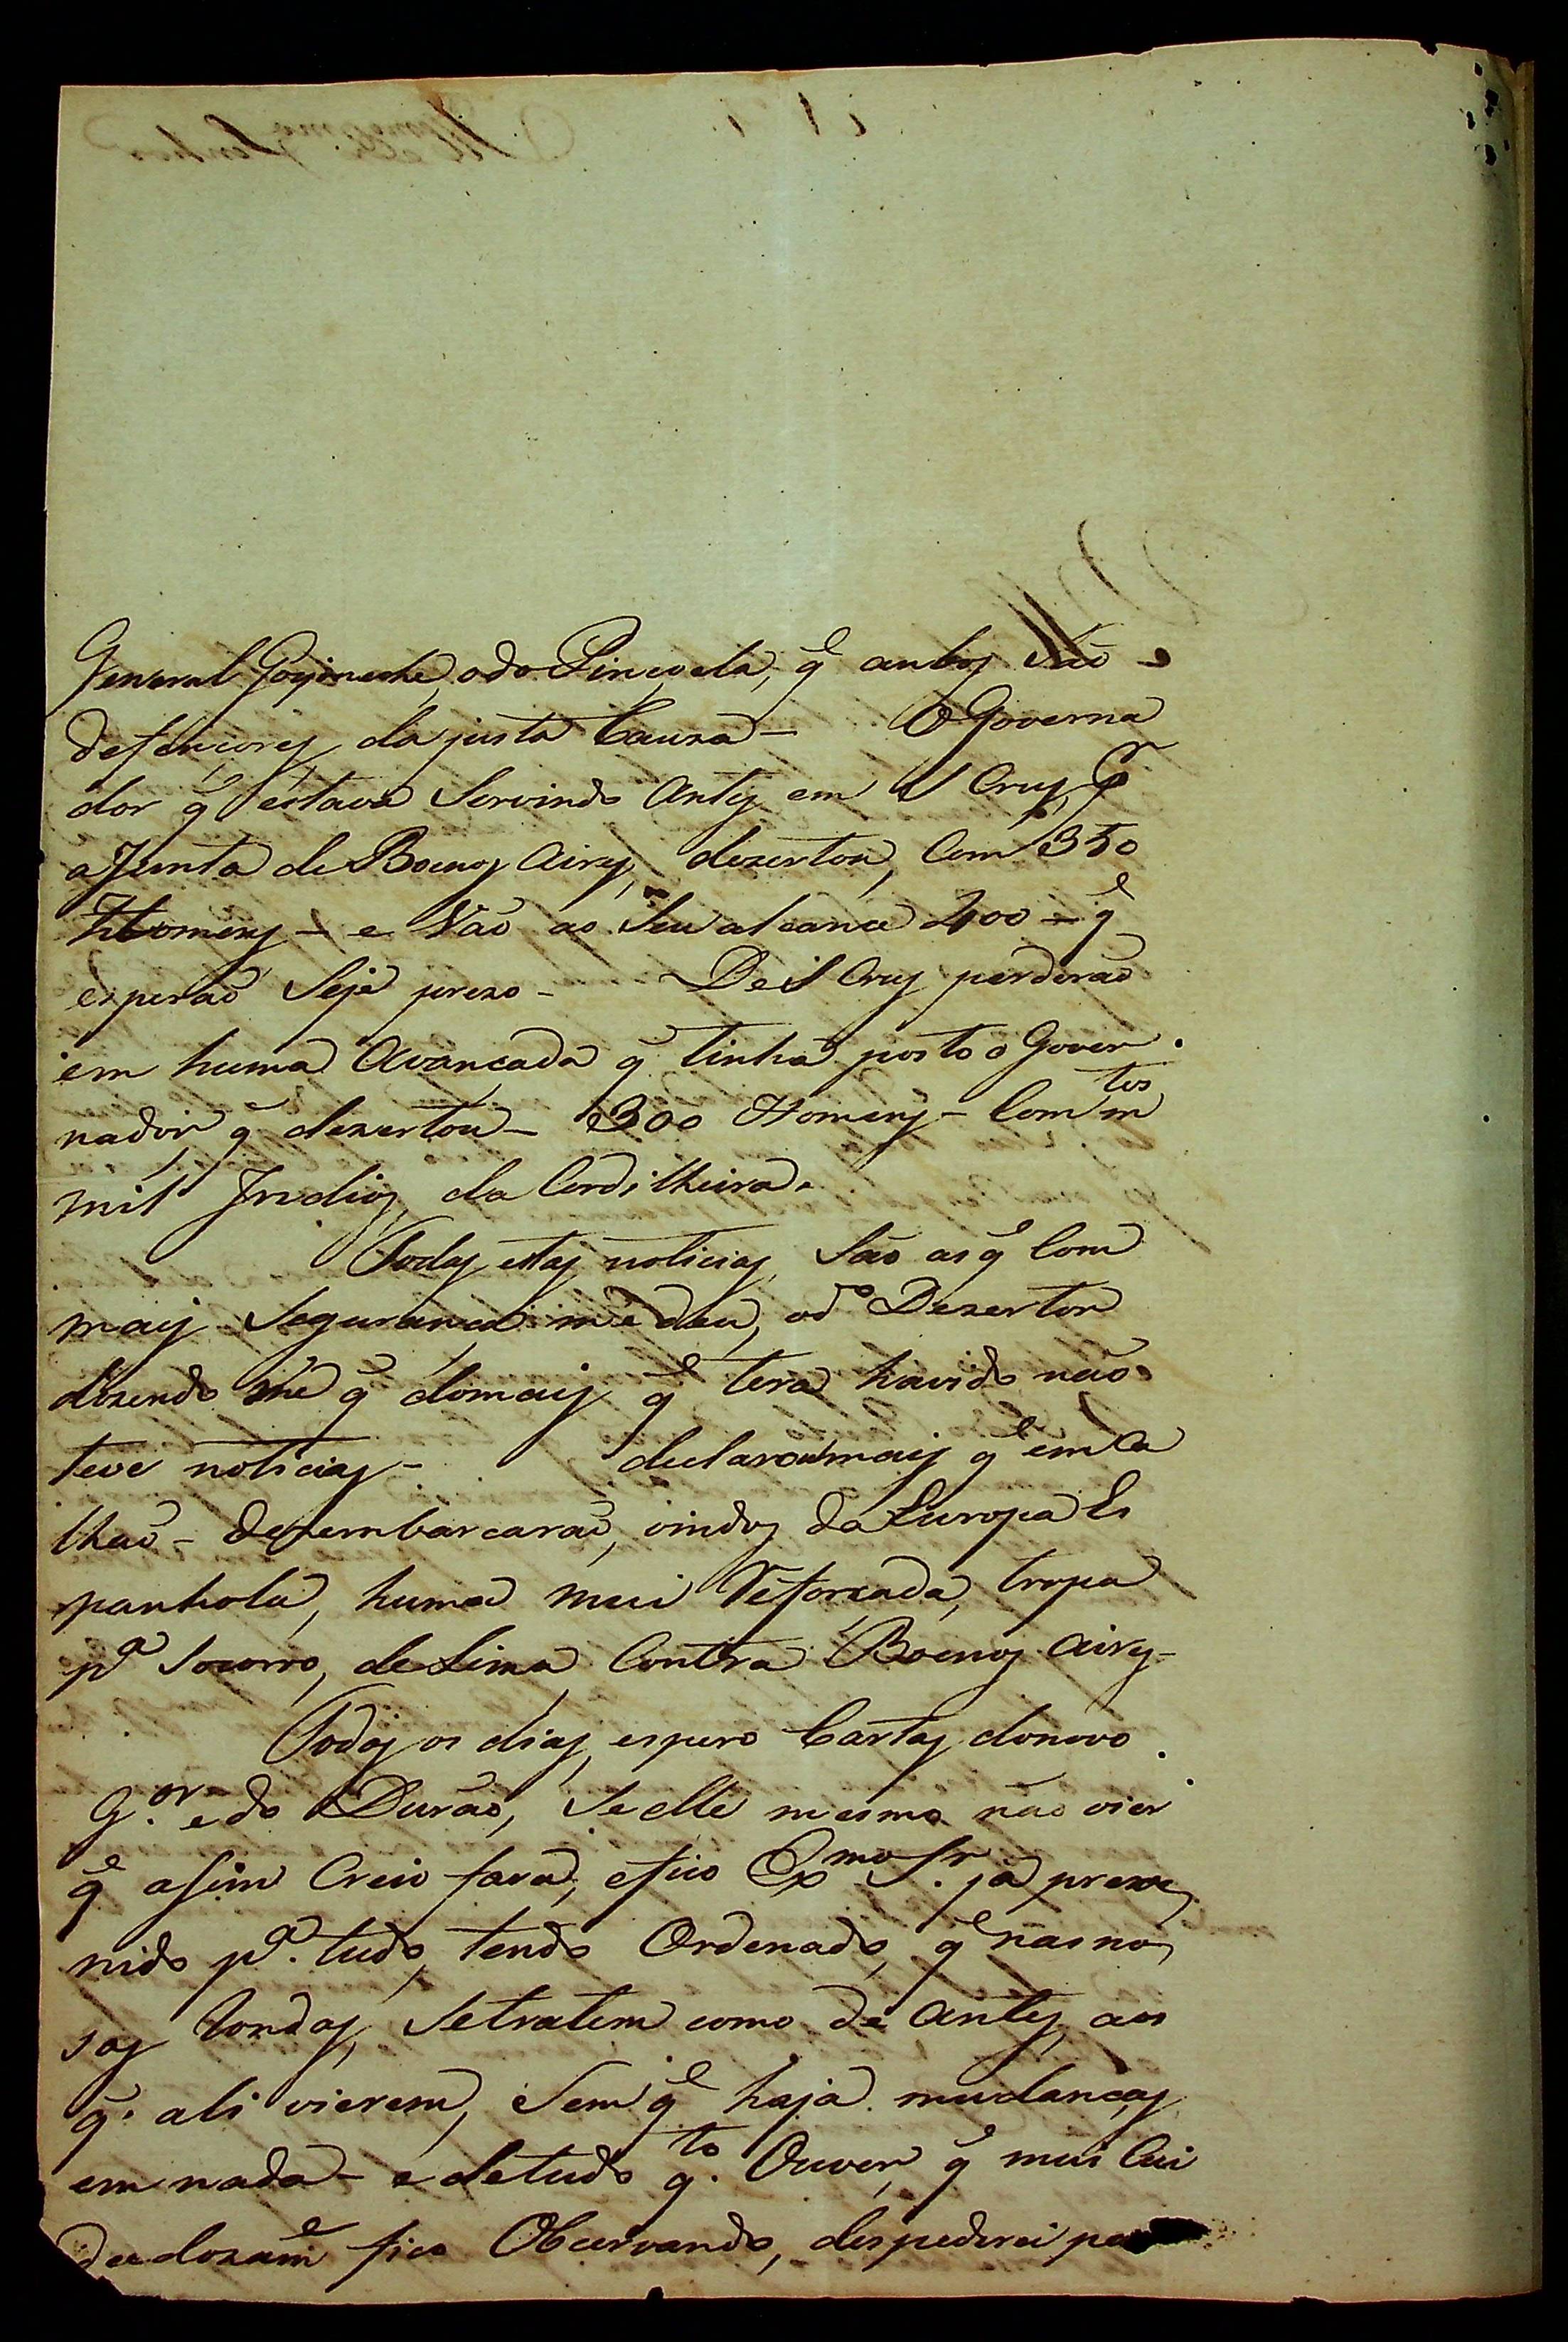 General Goyoneche, odo Pinçoela, q̃ anbos São
defençores da justa Cauza - O Governa
dor q̃ estava Servindo Antes em S Cruz, Pr
a Junta de Boenos Aires, dezertou, Com 350
Homens - e Vão ao Seu alcance 400 - q̃
esperaõ Seja prezo - De S Cruz perderaõ
em huma Avançada q̃ tinha posto o Gover
nador q̃ dezertou - 300 Homens - Com mtos
mil Indios da Cordilheira.
Todas estas noticias, São as q̃ Com
mais Segurança me deu, o do Dezertor
dizendo me q̃ domais q̃ tera havido não
teve noticias - declarou mais q̃ em Ca
lhaõ - dezembarcaraõ, vindos da Europa Es
panhola, huma mui Reforçada, tropa
pa Socorro, de Lima Contra Boenos Aires -
Todos os dias, espero Cartas donovo
G.or edo Durão, Se elle mesmo não vier
q̃ asim Creio fará, efico Exmo Sr. já preve
nido pa. tudo, tendo Ordenado, q̃ nas nos
sas Rondas, Setratem como de antes, aos
q̃. ali vierem, Sem q̃ haja mudanças
em nada - e detudo q.to Ouver, q̃ mui Cui
dadozame fico Obcervando, despederei